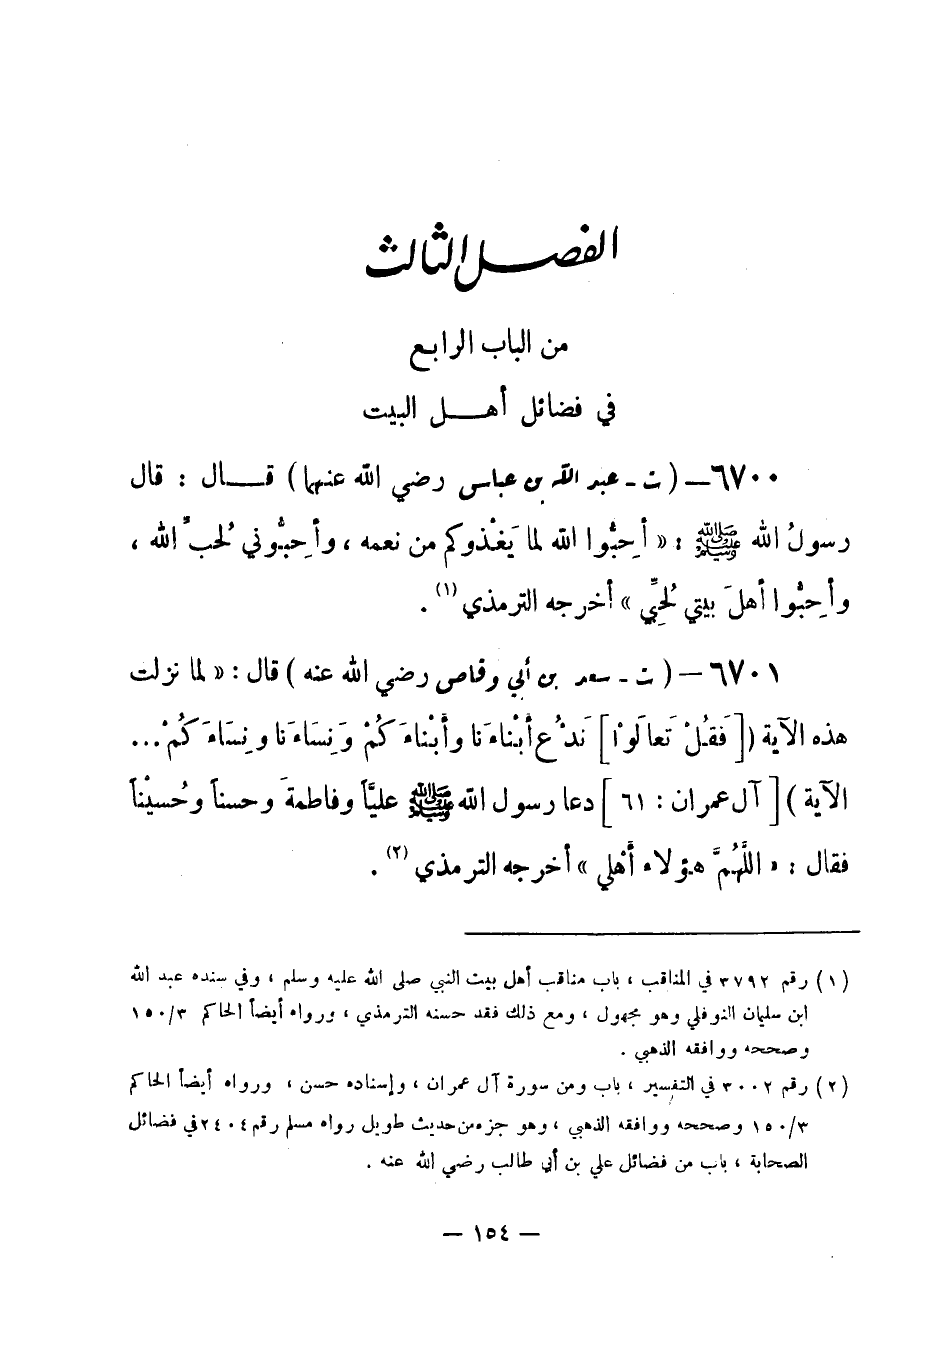 الفصل الثالث
من الباب الرابع
في فضائل أهل البيت
٦٧٠٠ – ( ت - عبد الله بن عباس رضي الله عنهما ) قال : قال
رسولُ الله ﷺ : « أَحِبُّوا الله لما يَغْذوكم من نعمه ، وأَحِبُّوني لحُبِّ الله ،
وأَحِبُّوا أهلَ بيتي لحُبِّي » أخرجه الترمذي (١) .
٦٧٠١ – ( ت - سعد بن أبي وقاص رضي الله عنه ) قال : « لما نزلت
هذه الآية ( [ فَقُلْ تَعالَوْا ] نَدْعُ أَبْناءَنا وأَبْناءَكُمْ وَنِساءَنا ونِساءَكُمْ ...
الآية ) [ آل عمران : ٦١ ] دعا رسول الله ﷺ عليّاً وفاطمةَ وحسناً وحُسيْناً
فقال : « اللَّهُمَّ هؤلاء أَهْلي » أخرجه الترمذي (٢) .
(١) رقم ٣٧٩٢ في المناقب ، باب مناقب أهل بيت النبي صلى الله عليه وسلم ، وفي سنده عبد الله
ابن سليمان النوفلي وهو مجهول ، ومع ذلك فقد حسنه الترمذي ، ورواه أيضاً الحاكم ١٥٠/٣
وصححه ووافقه الذهبي .
(٢) رقم ٣٠٠٢ في التفسير ، باب ومن سورة آل عمران ، وإسناده حسن ، ورواه أيضاً الحاكم
١٥٠/٣ وصححه ووافقه الذهبي ، وهو جزء من حديث طويل رواه مسلم رقم ٢٤٠٤ في فضائل
الصحابة ، باب من فضائل علي بن أبي طالب رضي الله عنه .
– ١٥٤ –